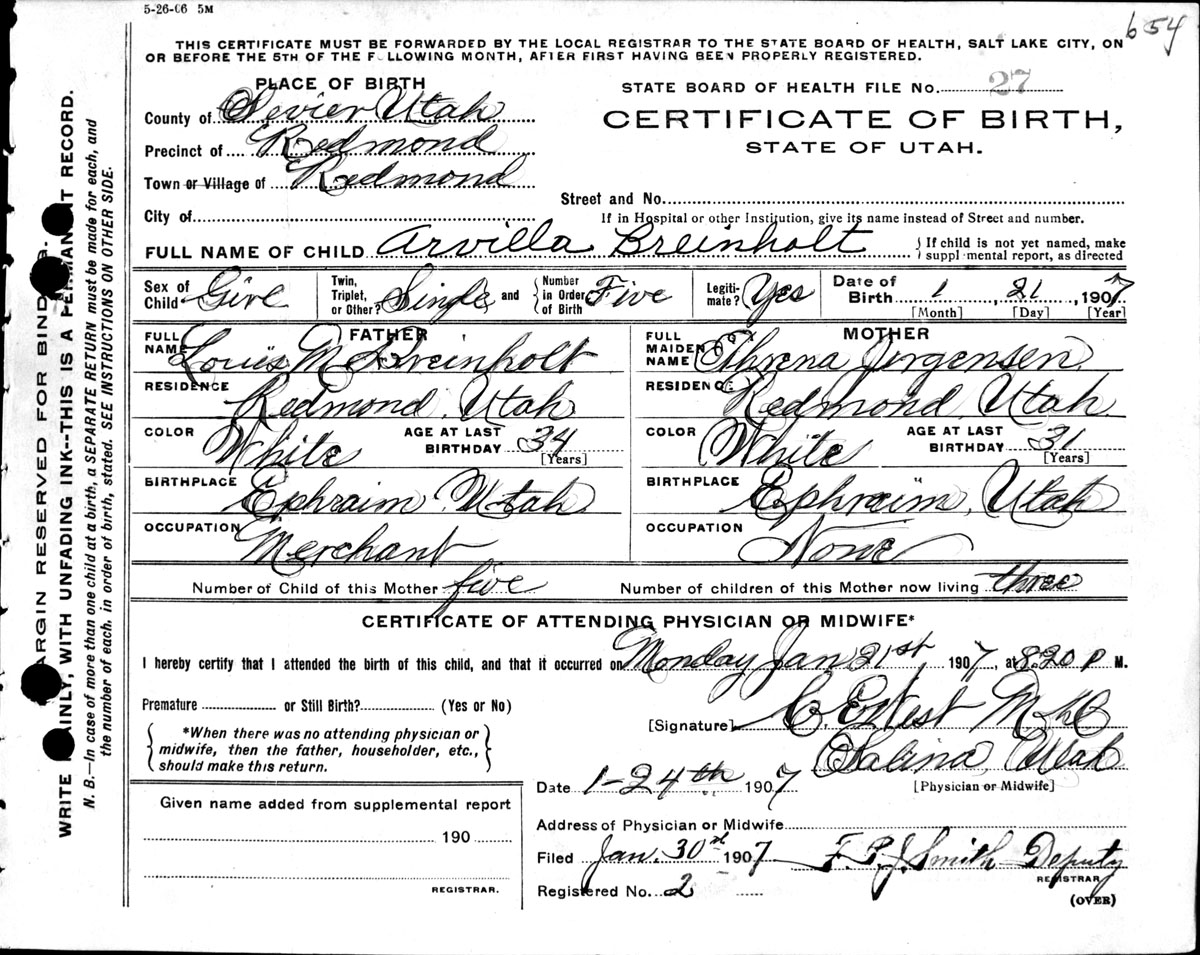 5-26-06 5M
654
THIS CERTIFICATE MUST BE FORWARDED BY THE LOCAL REGISTRAR TO THE STATE BOARD OF HEALTH, SALT LAKE CITY, ON
OR BEFORE THE 5TH OF THE FOLLOWING MONTH, AFTER FIRST HAVING BEEN PROPERLY REGISTERED.
PLACE OF BIRTH
STATE BOARD OF HEALTH FILE NO. 27
County of Sevier Utah
CERTIFICATE OF BIRTH,
STATE OF UTAH.
Precinct of Redmond
Town or Village of Redmond
Street and No.
City of
If in Hospital or other Institution, give its name instead of Street and number.
FULL NAME OF CHILD Arvilla Breinholt
If child is not yet named, make
supplemental report, as directed
Sex of Child Girl
Twin, Triplet, or Other? Single and
Number in Order of Birth Five
Legitimate? Yes
Date of Birth 1, 21, 1907
[Month] [Day] [Year]
FATHER
FULL NAME Louis M Breinholt
RESIDENCE Redmond, Utah
COLOR White
AGE AT LAST BIRTHDAY 34
[Years]
BIRTHPLACE Ephraim Utah
OCCUPATION Merchant
MOTHER
FULL MAIDEN NAME Jorgensen
RESIDENCE Redmond, Utah
COLOR White
AGE AT LAST BIRTHDAY 31
[Years]
BIRTHPLACE Ephraim, Utah
OCCUPATION None
Number of Child of this Mother five
Number of children of this Mother now living three
CERTIFICATE OF ATTENDING PHYSICIAN OR MIDWIFE*
I hereby certify that I attended the birth of this child, and that it occurred on Monday Jan 21st, 1907, at 8.20 P M.
Premature or Still Birth? (Yes or No)
[Signature]
*When there was no attending physician or
midwife, then the father, householder, etc.,
should make this return.
Salina, Utah
Date 1-24th 1907
[Physician or Midwife]
Given name added from supplemental report
190
REGISTRAR.
Address of Physician or Midwife
Filed Jan. 30 1907
F. P. J. Smith Deputy
REGISTRAR
Registered No. 2
(OVER)
MARGIN RESERVED FOR BINDING.
WRITE PLAINLY, WITH UNFADING INK--THIS IS A PERMANENT RECORD.
N. B.—In case of more than one child at a birth, a SEPARATE RETURN must be made for each, and
the number of each, in order of birth, stated. SEE INSTRUCTIONS ON OTHER SIDE.